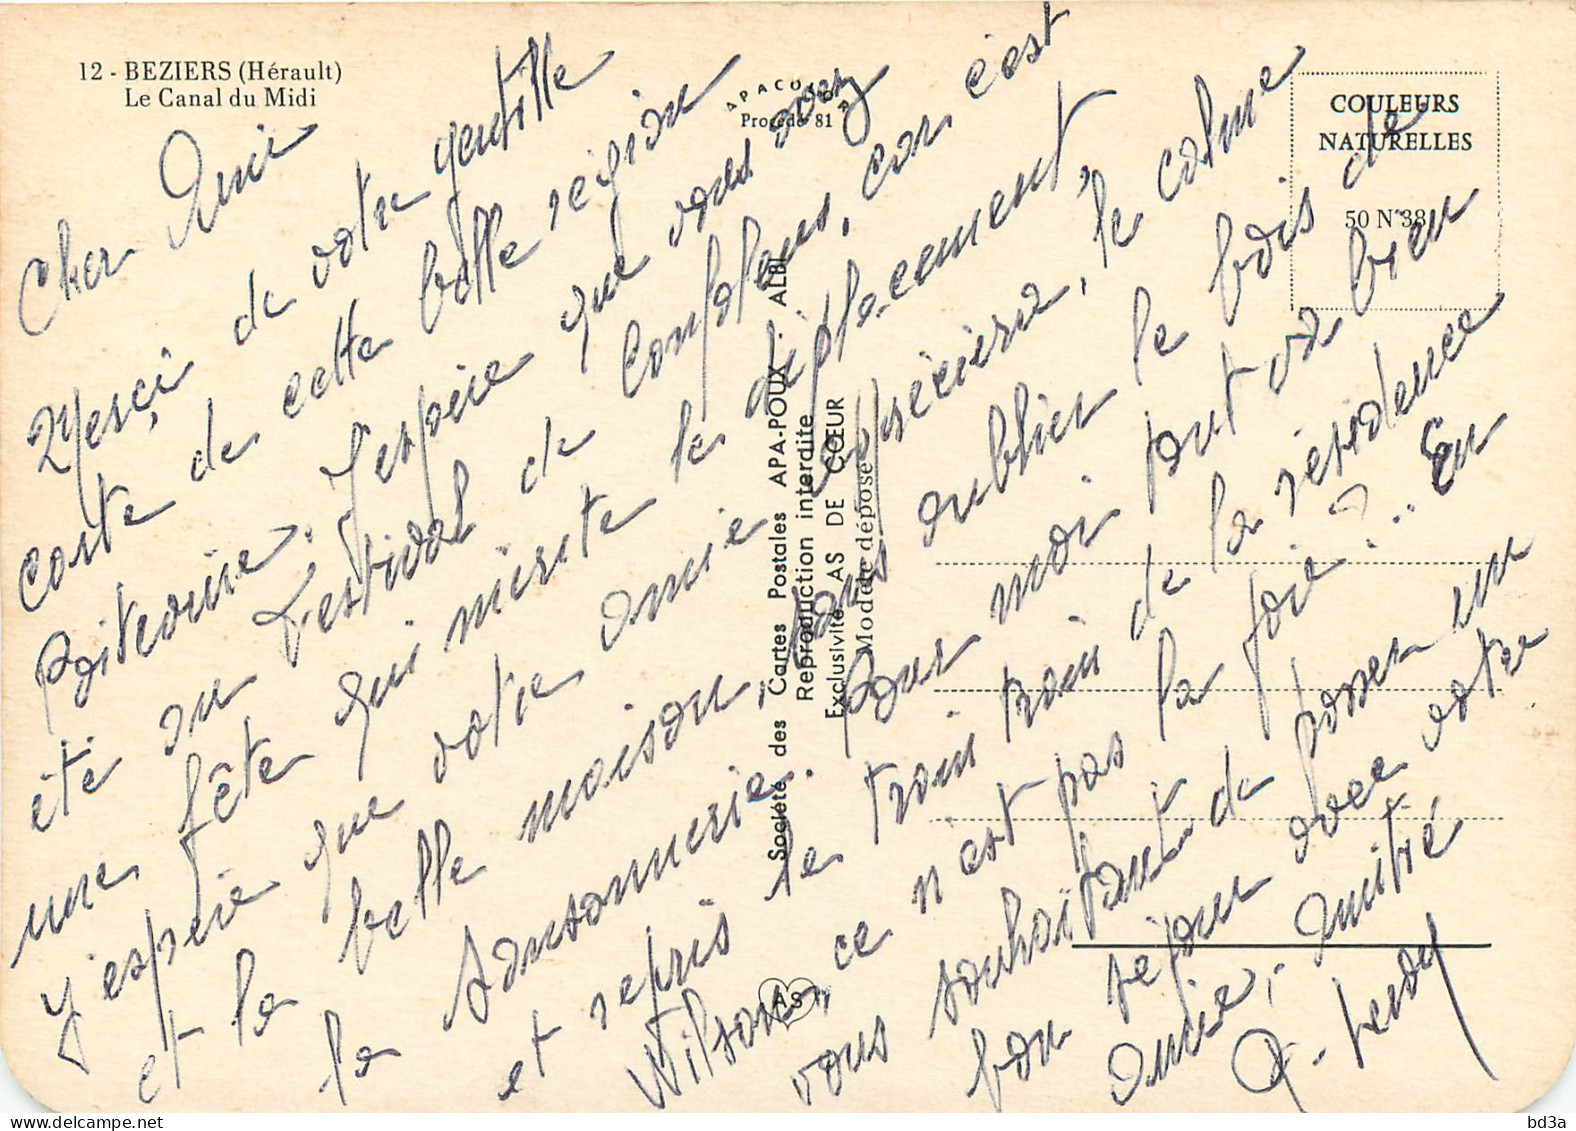 12 - BEZIERS (Hérault)
Le Canal du Midi
APACOLOR
Procédé 81
COULEURS
NATURELLES
50 N° 38
Société des Cartes Postales APA-POUX - ALBI
Reproduction interdite
Exclusivité AS DE CŒUR
Modèle déposé
AS
Cher Ami
Merçi de votre gentille
carte de cette belle région
Poitevine. J'espère que vous avez
été au Festival de Confolens, car c'est
une fête qui mérite le déplacement,
j'espère que votre amie apprécière, le calme
et la belle maison, sans oublier le bois de
la Sansonnerie. Pour moi tout va bien
et repris le train train de la résidence
Wilson, ce n'est pas la joie?.. En
vous souhaitant de passer un
bon séjour avec votre
amie, Amitié